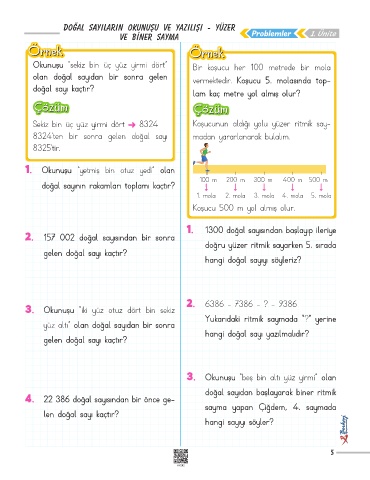 DOĞAL SAYILARIN OKUNUŞU VE YAZILIŞI - YÜZER
VE BİNER SAYMA
Problemler
1. Ünite
Örnek
Okunuşu "sekiz bin üç yüz yirmi dört"
olan doğal sayıdan bir sonra gelen
doğal sayı kaçtır?
Çözüm
Sekiz bin üç yüz yirmi dört → 8324
8324'ten bir sonra gelen doğal sayı
8325'tir.
1. Okunuşu "yetmiş bin otuz yedi" olan
doğal sayının rakamları toplamı kaçtır?
2. 157 002 doğal sayısından bir sonra
gelen doğal sayı kaçtır?
3. Okunuşu "iki yüz otuz dört bin sekiz
yüz altı" olan doğal sayıdan bir sonra
gelen doğal sayı kaçtır?
4. 22 386 doğal sayısından bir önce ge-
len doğal sayı kaçtır?
Örnek
Bir koşucu her 100 metrede bir mola
vermektedir. Koşucu 5. molasında top-
lam kaç metre yol almış olur?
Çözüm
Koşucunun aldığı yolu yüzer ritmik say-
madan yararlanarak bulalım.
100 m 200 m 300 m 400 m 500 m
1. mola 2. mola 3. mola 4. mola 5. mola
Koşucu 500 m yol almış olur.
1. 1300 doğal sayısından başlayıp ileriye
doğru yüzer ritmik sayarken 5. sırada
hangi doğal sayıyı söyleriz?
2. 6386 - 7386 - ? - 9386
Yukarıdaki ritmik saymada "?" yerine
hangi doğal sayı yazılmalıdır?
3. Okunuşu "beş bin altı yüz yirmi" olan
doğal sayıdan başlayarak biner ritmik
sayma yapan Çiğdem, 4. saymada
hangi sayıyı söyler?
5